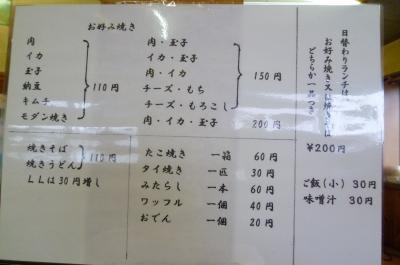 お好み焼き
肉
イカ
玉子
納豆
キムチ
モダン焼き
110円
肉・玉子
イカ・玉子
肉・イカ
チーズ・もち
チーズ・もろこし
150円
肉・イカ・玉子 200円
焼きそば
焼きうどん
110円
LLは30円増し
たこ焼き 一箱 60円
タイ焼き 一匹 30円
みたらし 一本 60円
ワッフル 一個 40円
おでん 一個 20円
日替わりランチは
お好み焼き又は焼きそば
どちらか一品つき
¥200円
ご飯(小) 30円
味噌汁 30円